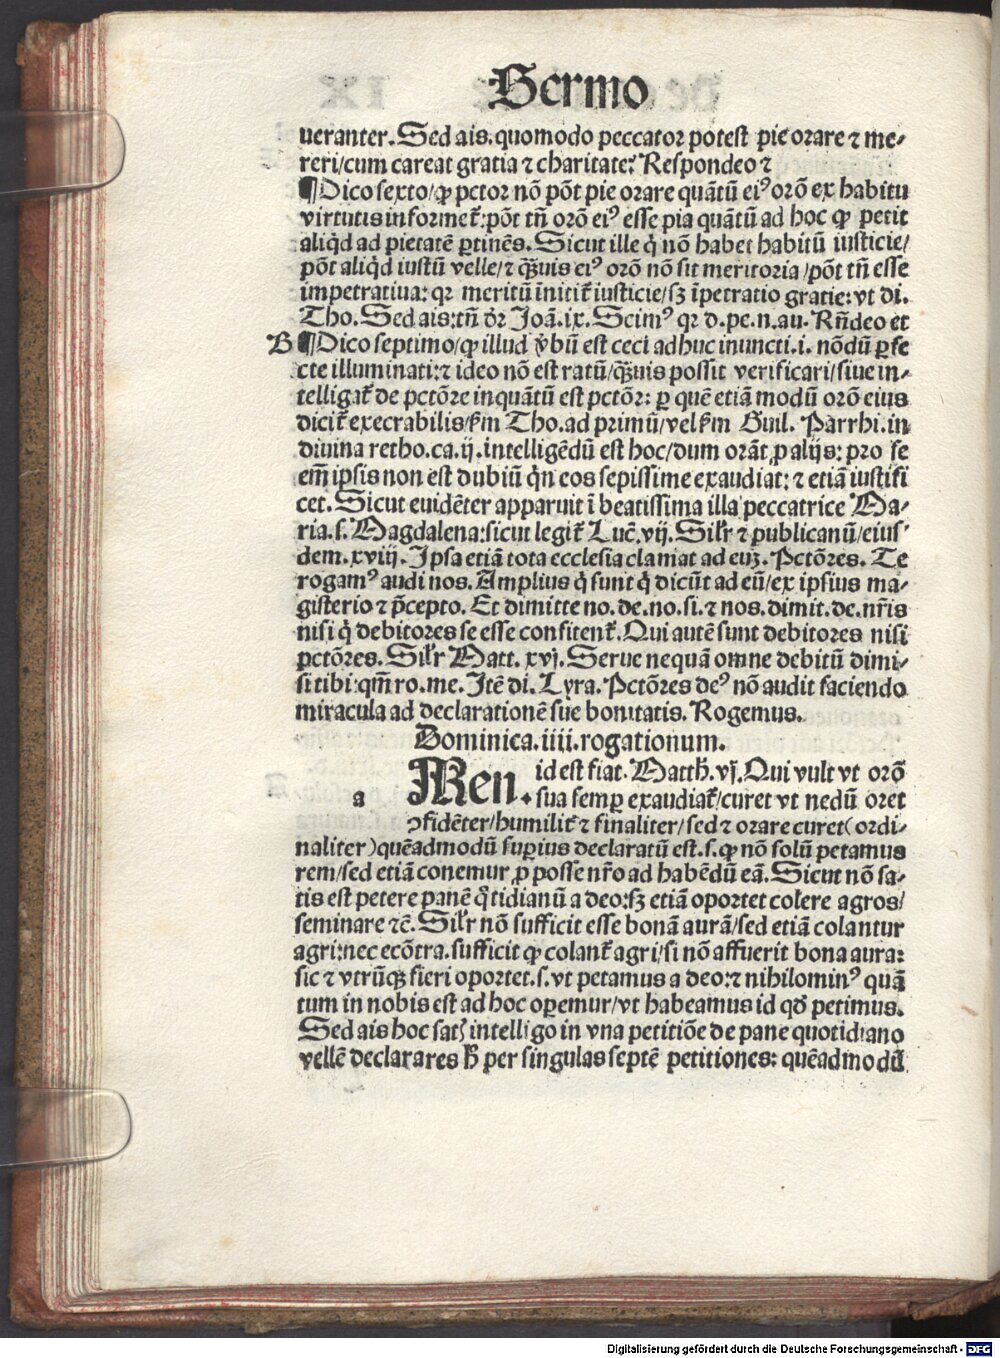 Sermo
ueranter. Sed ais. quomodo peccator potest pie orare ⁊ me-
reri/cum careat gratia ⁊ charitate? Respondeo ⁊
¶ Dico sexto/ꝙ pctor nõ põt pie orare quãtũ eiꝰ orõ ex habitu
virtutis informet᷑: põt tñ orõ eiꝰ esse pia quãtũ ad hoc ꝙ petit
aliqd̓ ad pietatẽ ꝑtinẽs. Sicut ille q̇ nõ habet habitũ iusticie/
põt aliqd̓ iustũ velle/⁊ q̃uis eiꝰ orõ nõ sit meritoria/põt tñ esse
impetratiua: qꝛ meritũ ĩnitit᷑ iusticie/sꝫ ĩpetratio gratie: vt di.
Tho. Sed ais: tñ dr̃ Joã. ix. Scimꝰ qꝛ d. pe. n. au. Rñdeo et
B ¶ Dico septimo/ꝙ illud v̓bũ est ceci adhuc inuncti .i. nõdũ ꝑfe
cte illuminati: ⁊ ideo nõ est ratũ/q̃uis possit verificari/siue in-
telligat᷑ de pctõre inquãtũ est pctõr: ꝑ quẽ etiã modũ orõ eius
dicit᷑ execrabilis/ẜm Tho. ad primũ/vel ẜm Guil. Parrhi. in
diuina retho. ca. ij. intelligẽdũ est hoc/dum orãt ꝓ alijs: pro se
em̃ ipsis non est dubiũ qn̓ eos sepissime exaudiat: ⁊ etiã iustifi
cet. Sicut euidẽter apparuit ĩ beatissima illa peccatrice Ma-
ria .s. Magdalena: sicut legit᷑ Luc̃. vij. Silr̃ ⁊ publicanũ/eius
dem. xviij. Ipsa etiã tota ecclesia clamat ad euꝫ. Pctõres. Te
rogamꝰ audi nos. Amplius q̇ sunt q̇ dicũt ad eũ/ex ipsius ma-
gisterio ⁊ p̃cepto. Et dimitte no. de. no. si. ⁊ nos. dimit. de. nr̃is
nisi q̇ debitores se esse confitent᷑. Qui autẽ sunt debitores nisi
pctõres. Silr̃ Matt. xvj. Serue nequã omne debitũ dimi-
si tibi: qm̃ ro. me. Itẽ di. Lyra. Pctõres deꝰ nõ audit faciendo
miracula ad declarationẽ sue bonitatis. Rogemus.
Dominica. iiii. rogationum.
a Amen. id est fiat. Matth̃. vj. Qui vult vt orõ
sua semꝑ exaudiat᷑/curet vt nedũ oret
ꝯfidẽter/humilit᷑ ⁊ finaliter/sed ⁊ orare curet (ordi-
naliter) quẽadmodũ suꝑius declaratũ est .s. ꝙ nõ solũ petamus
rem/sed etiã conemur ꝓ posse nr̃o ad habẽdũ eã. Sicut nõ sa-
tis est petere panẽ q̊tidianũ a deo: sꝫ etiã oportet colere agros/
seminare ⁊c̃. Silr̃ nõ sufficit esse bonã aurã/sed etiã colantur
agri: nec ecõtra. sufficit ꝙ colant᷑ agri/si nõ affuerit bona aura:
sic ⁊ vtrũqꝫ fieri oportet .s. vt petamus a deo: ⁊ nihilominꝰ quã
tum in nobis est ad hoc oꝑemur/vt habeamus id qd̓ petimus.
Sed ais hoc sat̓ intelligo in vna petitiõe de pane quotidiano
vellẽ declarares h̓ per singulas septẽ petitiones: quẽadmodũ
Digitalisierung gefördert durch die Deutsche Forschungsgemeinschaft - DFG